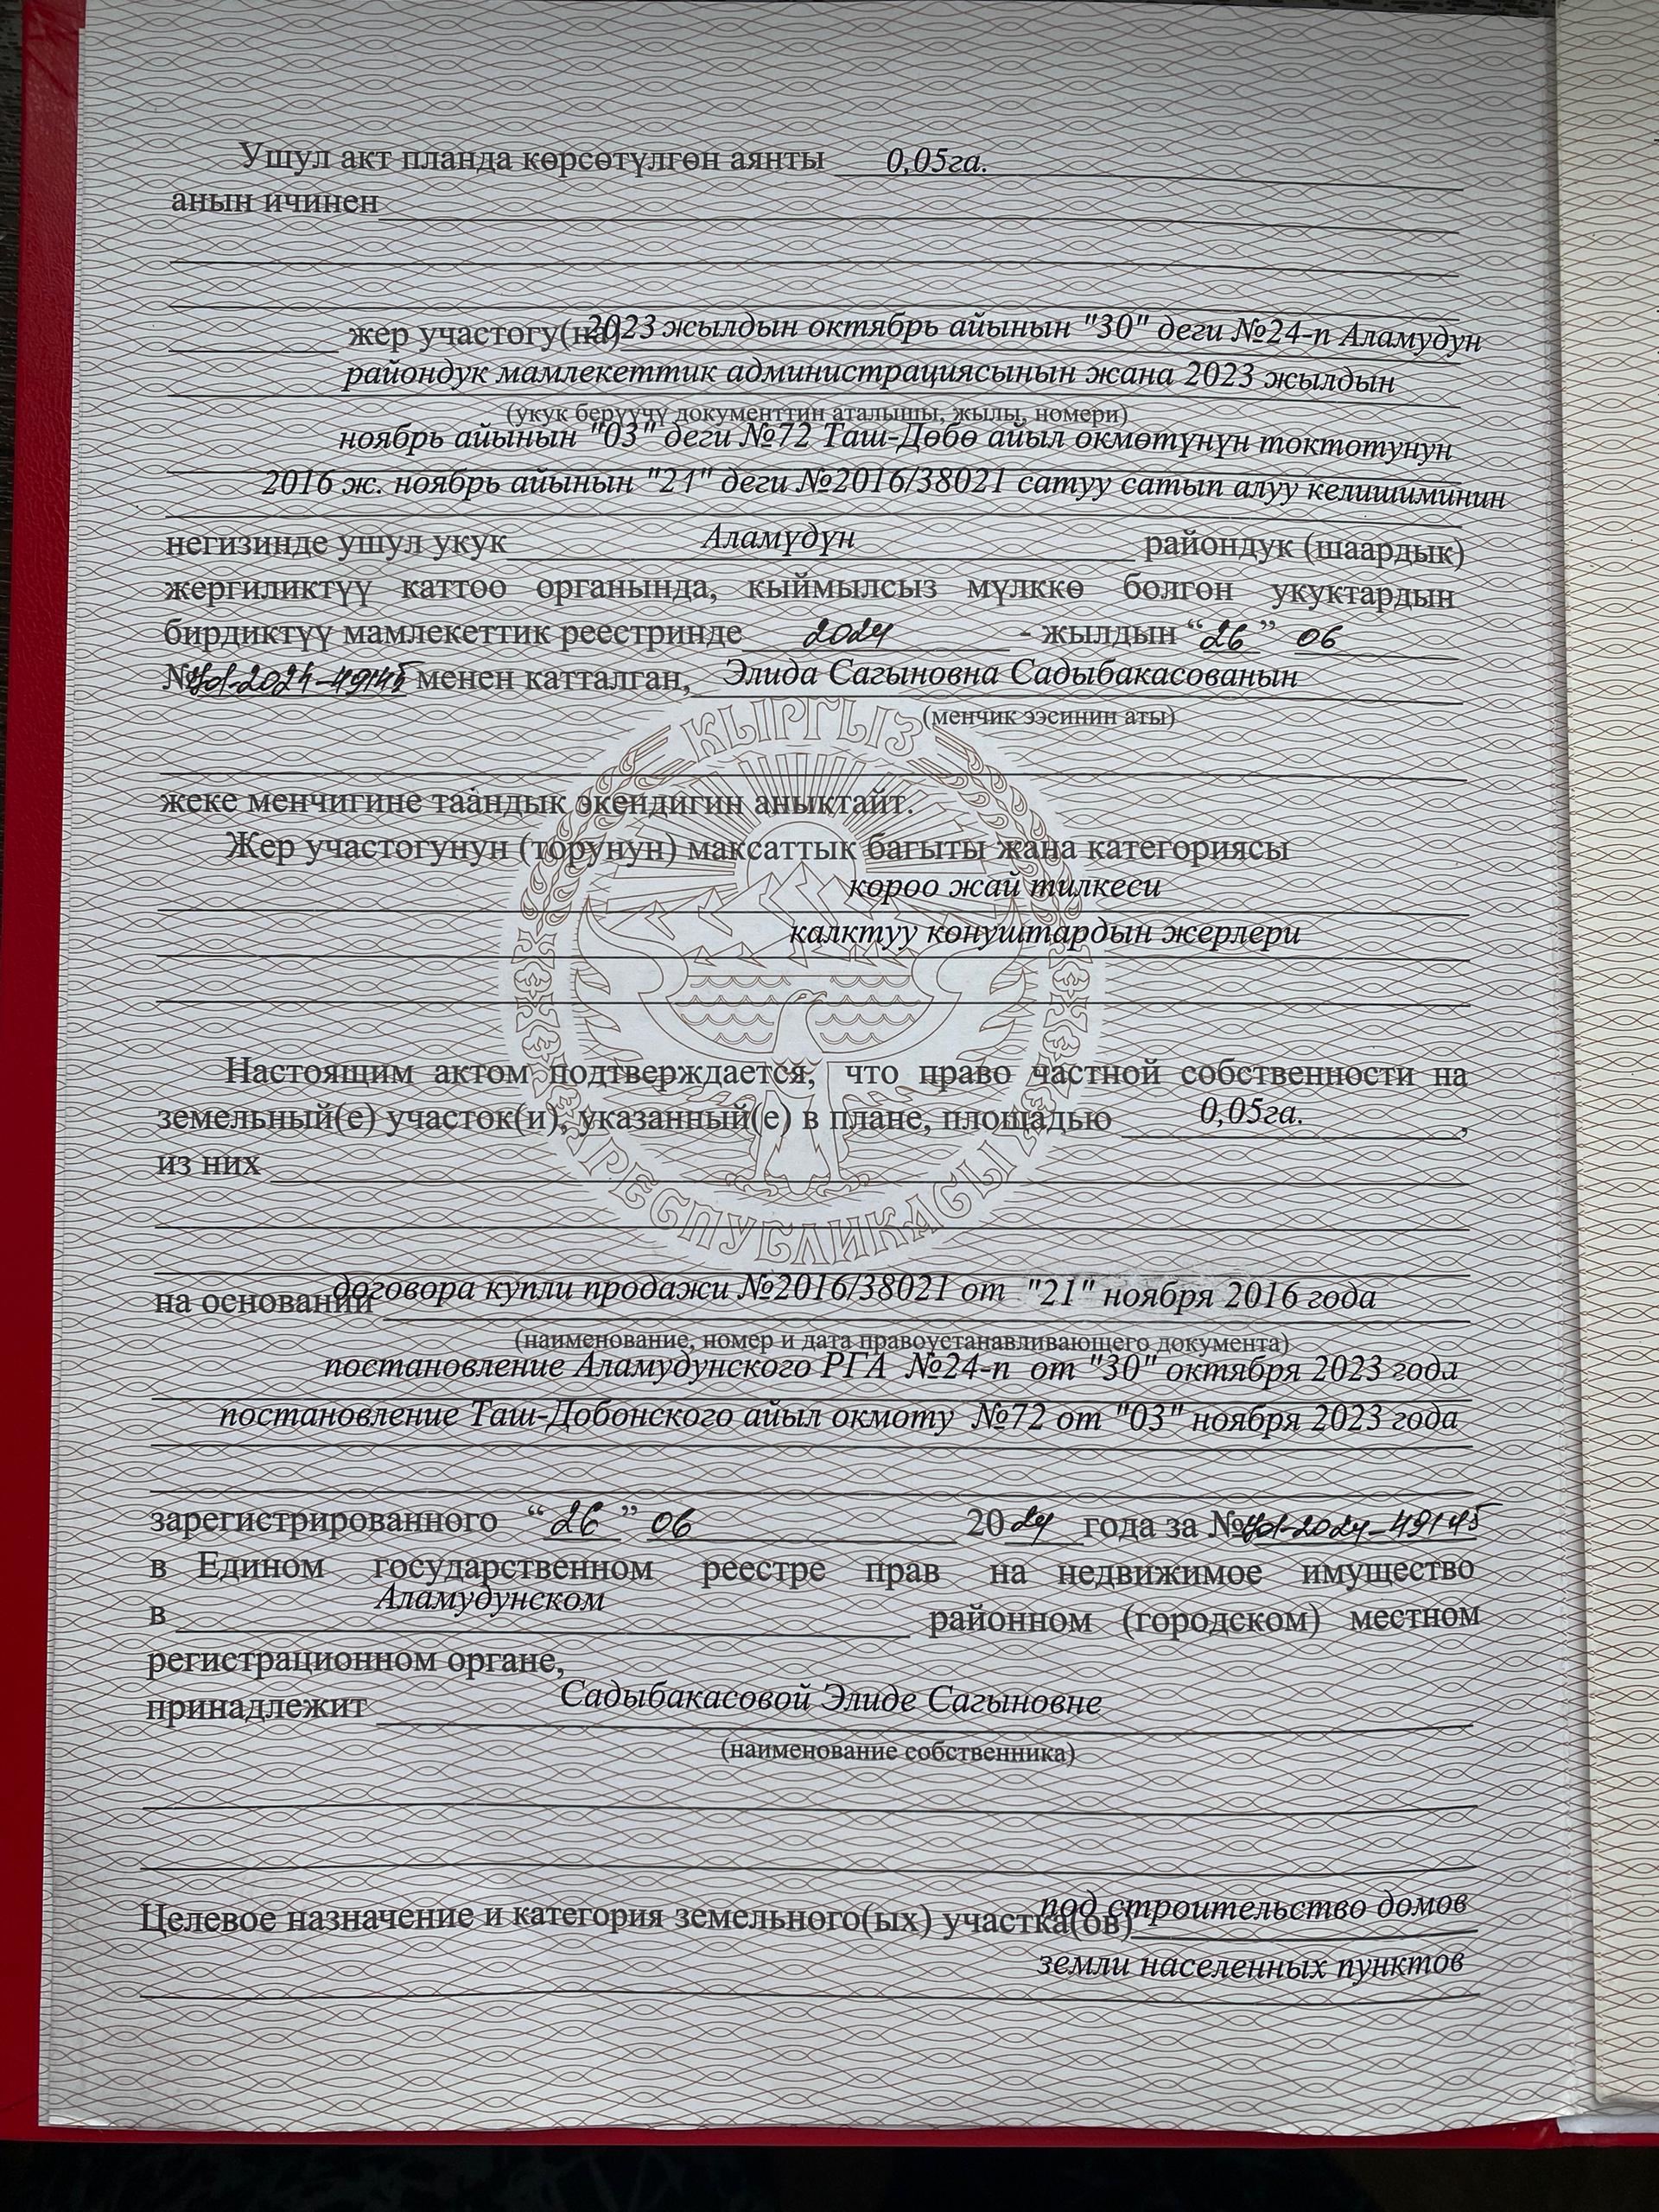 Ушул акт планда көрсөтүлгөн аянты 0,05га.
анын ичинен
жер участогу(на) 2023 жылдын октябрь айынын "30" деги №24-п Аламудун
райондук мамлекеттик администрациясынын жана 2023 жылдын
(укук берүүчү документтин аталышы, жылы, номери)
ноябрь айынын "03" деги №72 Таш-Дөбө айыл окмөтүнүн токтотунун
2016 ж. ноябрь айынын "21" деги №2016/38021 сатуу сатып алуу келишиминин
негизинде ушул укук Аламүдүн райондук (шаардык)
жергиликтүү каттоо органында, кыймылсыз мүлккө болгон укуктардын
бирдиктүү мамлекеттик реестринде 2024 - жылдын “26” 06
№ 2024-49145 менен катталган, Элида Сагыновна Садыбакасованын
(менчик ээсинин аты)
КЫРГЫЗ
жеке менчигине таандык экендигин аныктайт.
Жер участогунун (торунун) максаттык багыты жана категориясы
короо жай тилкеси
калктуу конуштардын жерлери
Настоящим актом подтверждается, что право частной собственности на
земельный(е) участок(и), указанный(е) в плане, площадью 0,05га. ,
из них
РЕСПУБЛИКАСЫ
на основании договора купли продажи №2016/38021 от "21" ноября 2016 года
(наименование, номер и дата правоустанавливающего документа)
постановление Аламудунского РГА №24-п от "30" октября 2023 года
постановление Таш-Добонского айыл окмоту №72 от "03" ноября 2023 года
зарегистрированного “26” 06 2024 года за № 2024-49145
в Едином государственном реестре прав на недвижимое имущество
в Аламудунском районном (городском) местном
регистрационном органе,
принадлежит Садыбакасовой Элиде Сагыновне
(наименование собственника)
Целевое назначение и категория земельного(ых) участка(ов) под строительство домов
земли населенных пунктов